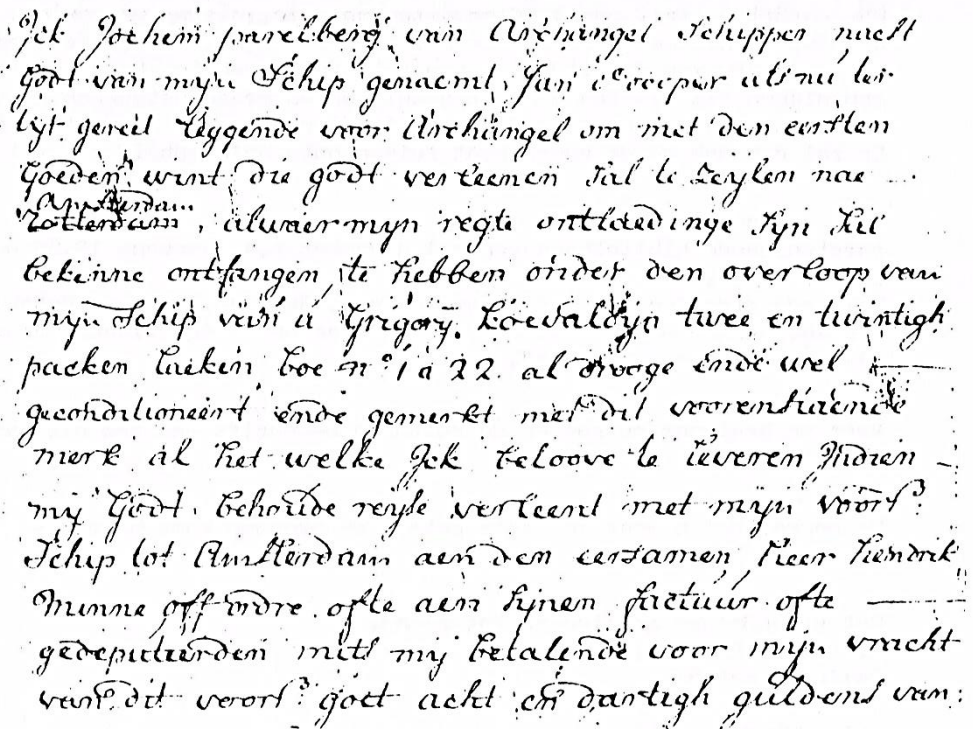 Jck Jochim parelberg van Archangel Schipper naest
godt van mijn Schip genaemt, Jan de als nu ter
tijt gereet leggende voor Archangel om met den eersten
Goeden wint die godt verleenen sal te zeylen nae
Amsterdam
Rotterdam, alwaer mijn regte ontlaedinge sijn sal
bekenne ontfangen te hebben onder den overloop van
mijn Schip van u Grigorij twee en twintigh
packen laeken No 1 a 22 al drooge ende wel
geconditioneert ende gemerkt met dit voorenstaende
merk al het welke Jck beloove te leveren Jndien
mij Godt behoude reyse verleent met mijn voors:
Schip tot Amsterdam aen den eersamen heer hendrik
Minne off ordre ofte aen sijnen factuur ofte
gedeputeerden mits mij betalende voor mijn vracht
van dit voors: goet acht en dartigh guldens van